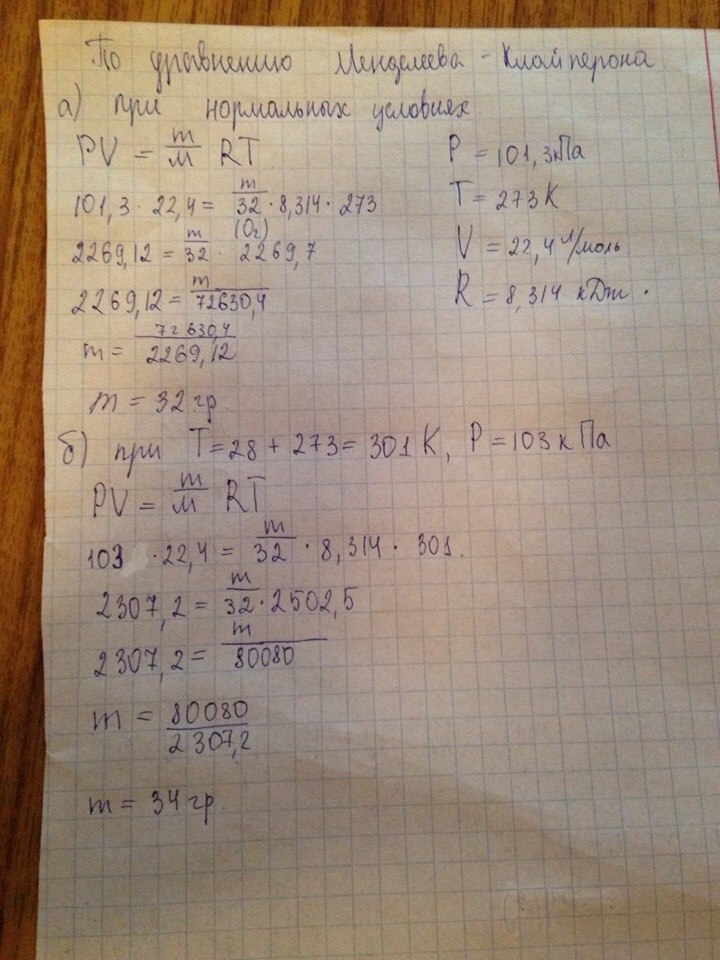 По уравнению Менделеева - Клайперона
а) при нормальных условиях.
PV = m/M RT
P = 101,3 кПа
101,3 · 22,4 = m/32 · 8,314 · 273
T = 273 K
(O₂)
2269,12 = m/32 · 2269,7
V = 22,4 л/моль
2269,12 = m/72630,4
R = 8,314 кДж ·
m = 72630,4/2269,12
m = 32 гр.
б) при T = 28 + 273 = 301 K, P = 103 кПа
PV = m/M RT
103 · 22,4 = m/32 · 8,314 · 301.
2307,2 = m/32 · 2502,5
2307,2 = m/80080
m = 80080/2307,2
m = 34 гр